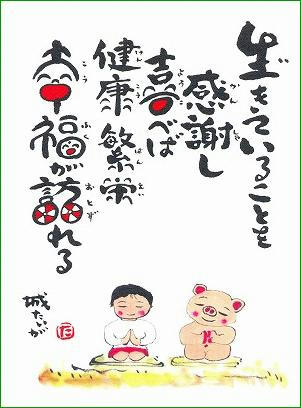 生きていることを
感謝し
喜べば
健康繁栄
幸福が訪れる
城たいが